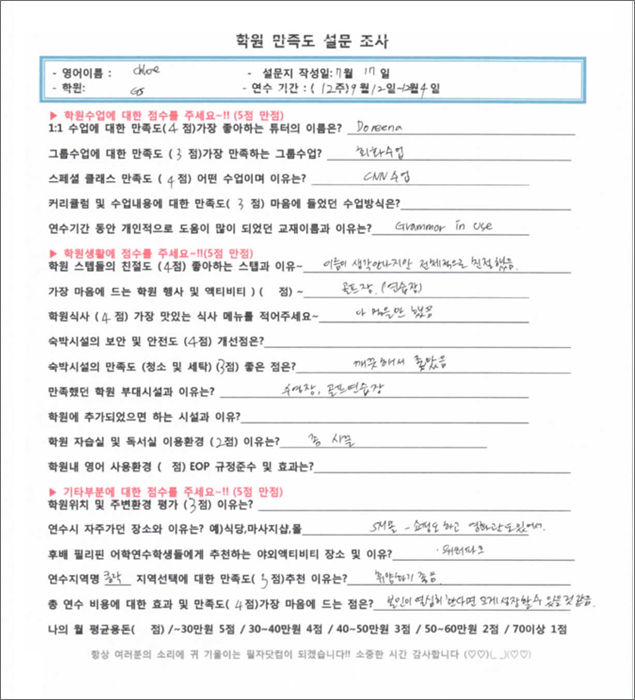 학원 만족도 설문 조사
- 영어이름 : chloe - 설문지 작성일: 7월 17 일
- 학원: GS - 연수 기간 : ( 12주) 9월 12일~12월4일
▶ 학원수업에 대한 점수를 주세요~!! (5점 만점)
1:1 수업에 대한 만족도( 4 점)가장 좋아하는 튜터의 이름은? Doreena
그룹수업에 대한 만족도 ( 3 점)가장 만족하는 그룹수업? 회화수업
스페셜 클래스 만족도 ( 4 점) 어떤 수업이며 이유는? CNN 수업
커리큘럼 및 수업내용에 대한 만족도( 3 점) 마음에 들었던 수업방식은?
연수기간 동안 개인적으로 도움이 많이 되었던 교재이름과 이유는? Grammar in use
▶ 학원생활에 점수를 주세요~!!(5점 만점)
학원 스텝들의 친절도 (4점) 좋아하는 스탭과 이유~ 이름이 생각안나지만 전체적으로 친절했음.
가장 마음에 드는 학원 행사 및 액티비티 ) ( 점) ~ 골프장. (연습장)
학원식사 ( 4 점) 가장 맛있는 식사 메뉴를 적어주세요~ 다 먹을만 했음
숙박시설의 보안 및 안전도 (4점) 개선점은?
숙박시설의 만족도 (청소 및 세탁) (3점) 좋은 점은? 깨끗해서 좋았음
만족했던 학원 부대시설과 이유는? 수영장, 골프연습장
학원에 추가되었으면 하는 시설과 이유?
학원 자습실 및 독서실 이용환경 (2점) 이유는? 좀 시끌
학원내 영어 사용환경 ( 점) EOP 규정준수 및 효과는?
▶ 기타부분에 대한 점수를 주세요~!! (5점 만점)
학원위치 및 주변환경 평가 (3점) 이유는?
연수시 자주가던 장소와 이유는? 예)식당,마사지샵,몰 SM몰 - 쇼핑도 하고 영화관도 있어서.
후배 필리핀 어학연수학생들에게 추천하는 야외액티비티 장소 및 이유?
연수지역명 클락 지역선택에 대한 만족도( 3 점)추천 이유는? 휴양하기 좋음
총 연수 비용에 대한 효과 및 만족도( 4점)가장 마음에 든 점은? 본인이 열심히 한다면 크게 성장할 수 있을것 같음.
나의 월 평균용돈( 점) /~30만원 5점 / 30~40만원 4점 / 40~50만원 3점 / 50~60만원 2점 / 70이상 1점
항상 여러분의 소리에 귀 기울이는 필자닷컴이 되겠습니다!! 소중한 시간 감사합니다 (♡♡)(_ _)(♡♡)